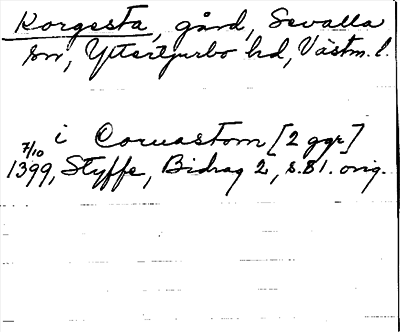 Korgesta, gård, Sevalla
sn, Yttertjurbo hd, Västm. l.
i Coruastom [2 ggr]
7/10 1399, Styffe, Bidrag 2, s. 81. orig.